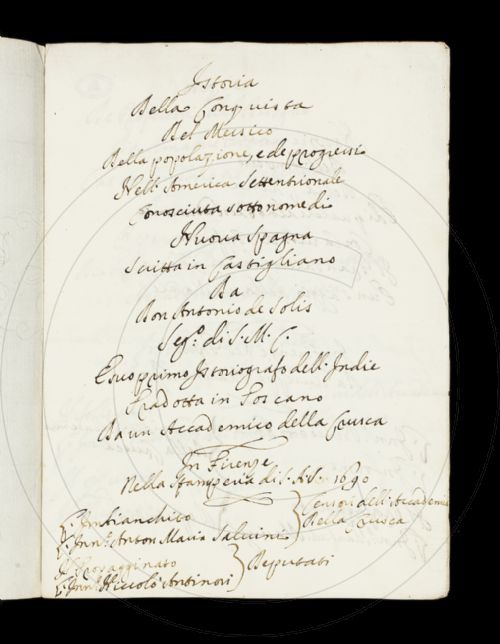 Istoria
Della Conquista
Del Messico
Della popolazione, e de progressi
Nell' America Settentrionale
Conosciuta sotto nome di
Nuova Spagna
Scritta in Castigliano
Da
Don Antonio de Solis
Seg.º di S. M. C.
E suo primo Istoriografo dell' Indie
Tradotta in Toscano
Da un Accademico della Crusca
In Firenze
Nella Stamperia di S. A. S. 1690
L' Imbianchito
L' Inn.º Anton Maria Salvini
Censori dell' Accademia
Della Crusca
L' Inn.º Niccolò Antinori
Deputati